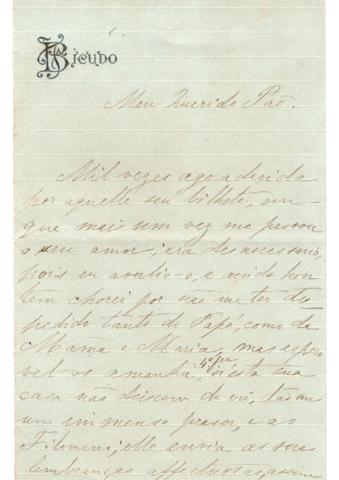 BICUDO
Meu Querido Pae.
Mil vezes agradecida
por aquelle seu bilhete, em
que mais uma vez me provou
o seu amor; era desnecessario,
pois eu avalio-o, e ainda hon
tem chorei por não me ter des
pedido tanto de Papá, como da
Mamã e Maria, mas espero
vel-os amanhã, 4ª feira n'esta sua
casa não deixem de vir, dar-me
um immenso praser, e ao
Filomeno; elle envia as suas
lembranças affectuosas, assim